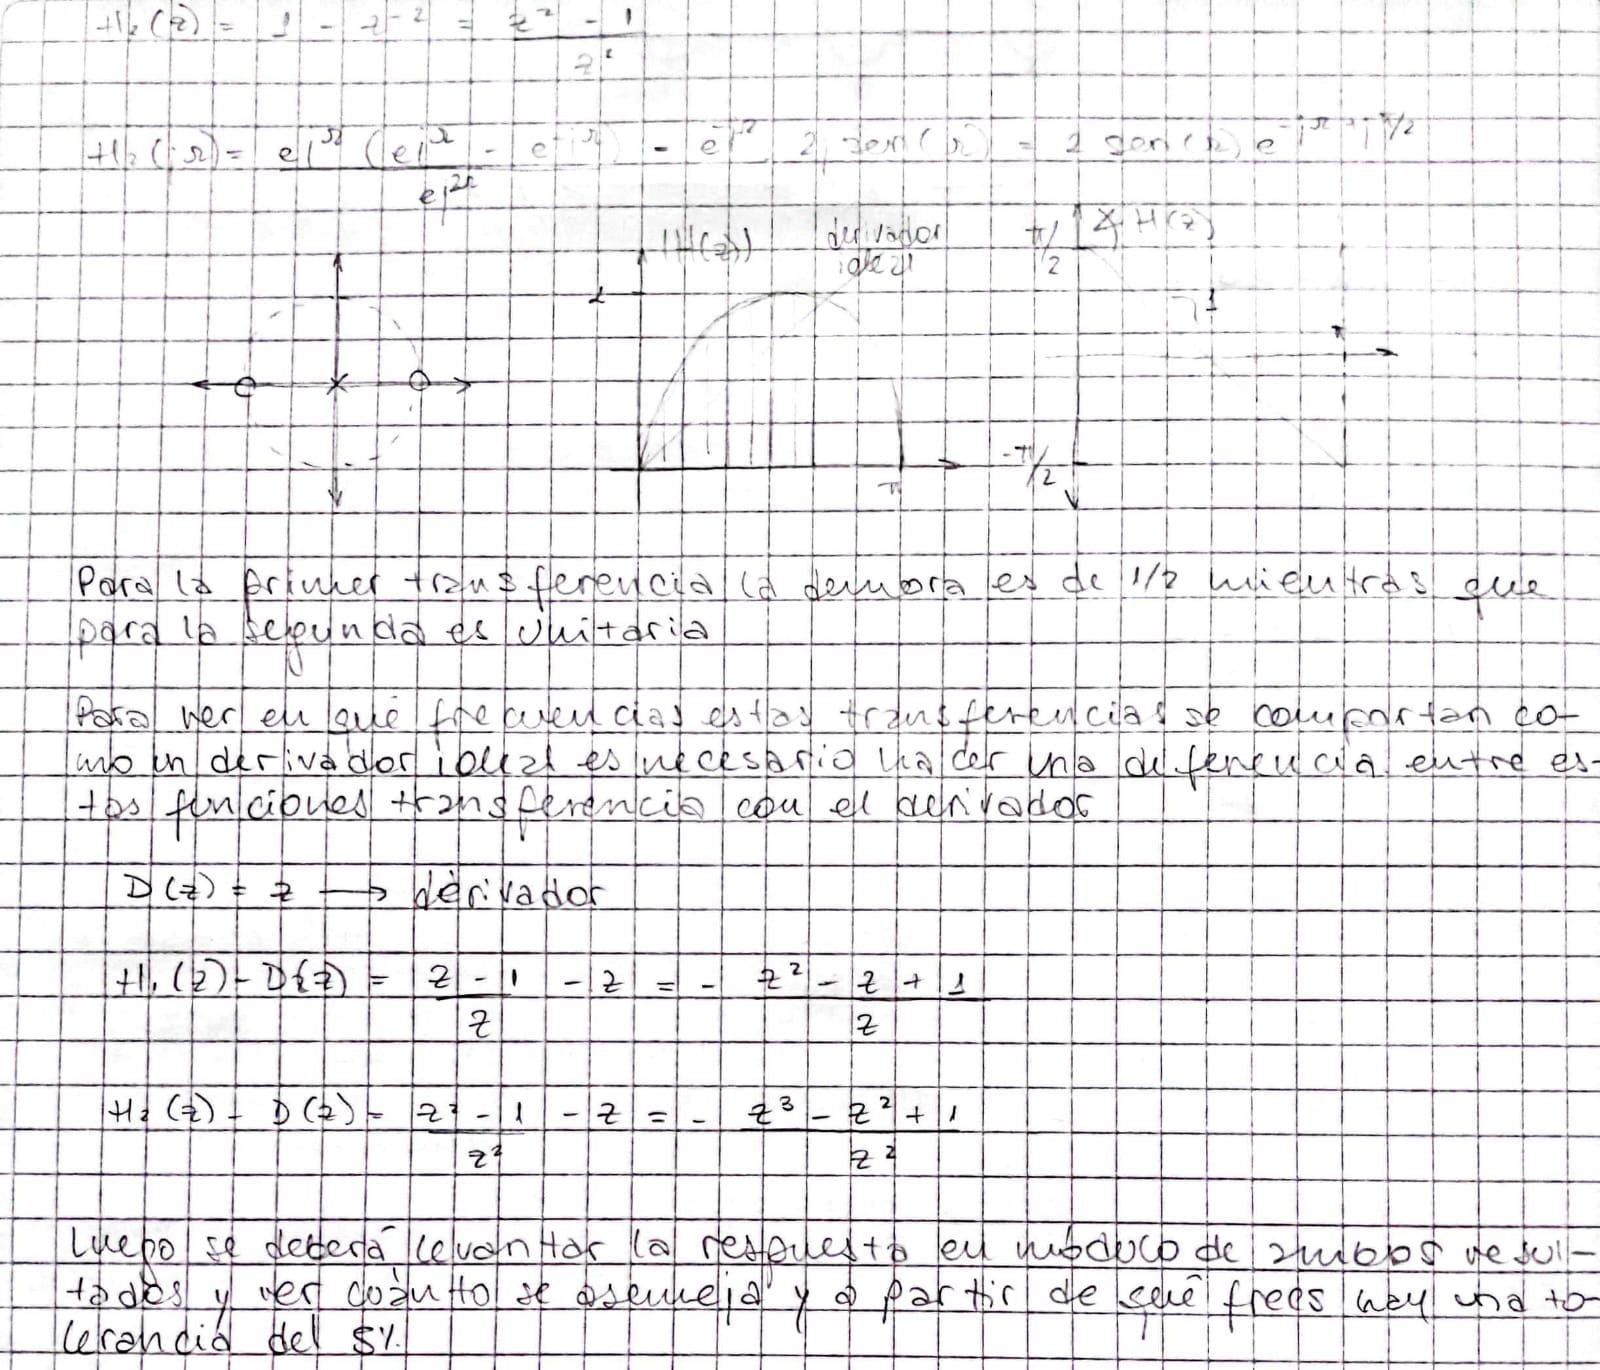 H₂(z) = 1 - z⁻² = (z² - 1)/z²
H₂(jΩ) = e^{jΩ} (e^{jΩ} - e^{-jΩ})/e^{j2Ω} = e^{-jΩ} 2j sen(Ω) = 2 sen(Ω) e^{-jΩ + jπ/2}
|H(z)|
derivador
ideal
2
π
π/2
∡ H(z)
-1
π
-π/2
Para la primer transferencia la demora es de 1/2 mientras que
para la segunda es unitaria
Para ver en qué frecuencias estas transferencias se comportan co-
mo un derivador ideal es necesario hacer una diferencia entre es-
tas funciones transferencia con el derivador
D(z) = z → derivador
H₁(z) - D(z) = (z - 1)/z - z = - (z² - z + 1)/z
H₂(z) - D(z) = (z² - 1)/z² - z = - (z³ - z² + 1)/z²
Luego se deberá levantar la respuesta en módulo de ambos resul-
tados y ver cuánto se asemeja y a partir de qué frecs hay una to-
lerancia del 5%.